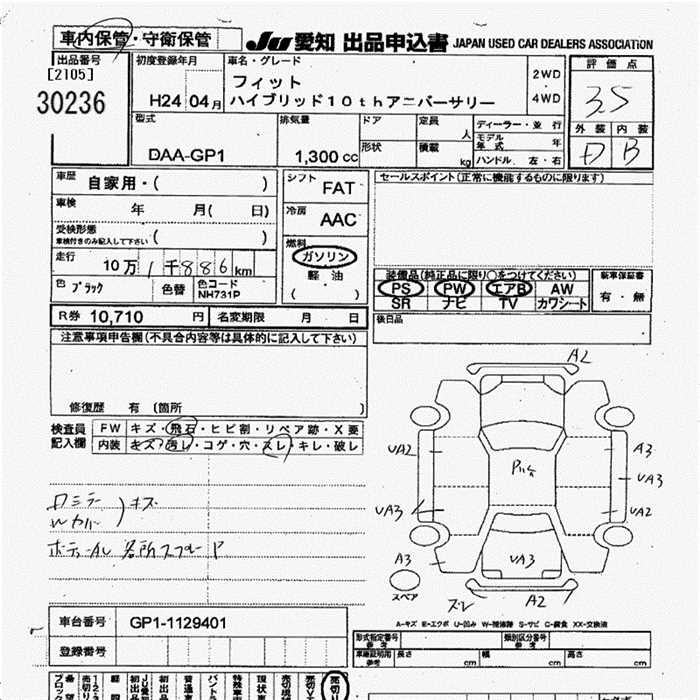 車内保管・守衛保管
JU 愛知 出品申込書 JAPAN USED CAR DEALERS ASSOCIATION
出品番号
[2105]
30236
初度登録年月
H24 04月
車名・グレード
フィット
ハイブリッド10thアニバーサリー
2WD
4WD
評価点
3.5
外装 内装
D B
型式
DAA-GP1
排気量
1,300 cc
ドア
形状
定員 人
積載 kg
ディーラー・並行
モデル年式 年
ハンドル 左・右
車歴 自家用・( )
車検 年 月( 日)
受検形態
車検付きのみ記入して下さい ( )
走行 10万 1千886km
色 ブラック 色替 色コード
NH731P
シフト
FAT
冷房
AAC
燃料
ガソリン
軽油
( )
セールスポイント(正常に機能するものに限ります)
装備品(純正品に限り○をつけてください)
PS PW エアB AW
SR ナビ TV カワシート
新車保証書
有・無
後日品
R券 10,710 円 名変期限 月 日
注意事項申告欄(不具合内容等は具体的に記入して下さい)
修復歴 有 (箇所
検査員
記入欄
FW キズ・飛石・ヒビ割・リペア跡・X要
内装 キズ・汚レ・コゲ・穴・スレ・キレ・破レ
Dミラー
Wカバー
キズ
A2
UA2
A3
UA3
UA3
UA2
UA3
A3
A2
スレ
スペア
A-キズ E-エクボ U-凹み W-補修跡 S-サビ C-腐食 XX-交換済
車台番号 GP1-1129401
登録番号
型式指定番号
参考
類別区分番号
参考
車庫証明用
参考
長さ cm 幅 cm 高さ cm